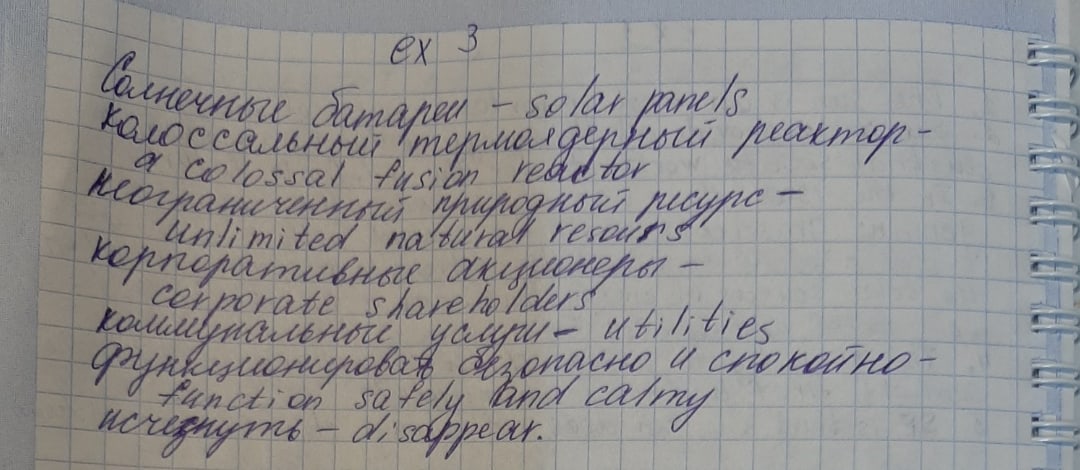 ex 3
Солнечные батареи - solar panels
колоссальный термоядерный реактор-
a colossal fusion reactor
неограниченный природный ресурс -
unlimited natural resours
корпоративные акционеры -
corporate shareholders
коммунальные услуги - utilities
функционировать безопасно и спокойно -
function safely and calmy
исчезнуть - disappear.